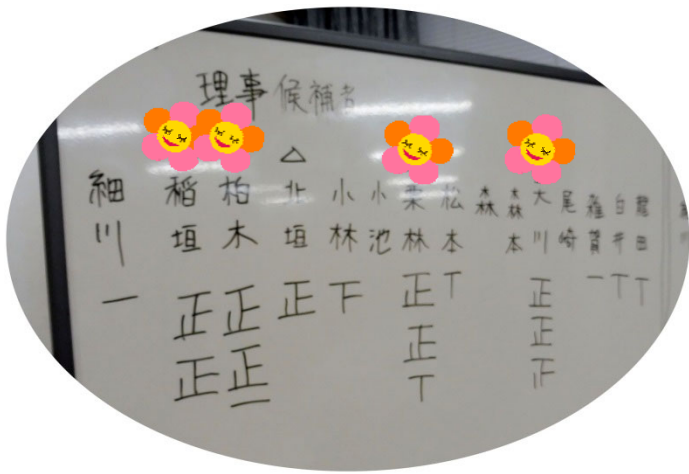 理事候補名
細川 一
稲垣 正正
柏木 正正一
△北垣 正
小林 下
小池
栗林 正正丅
松本 丅
森
森本
川 正正
尾崎
賀 一
白井 丅
田 丅